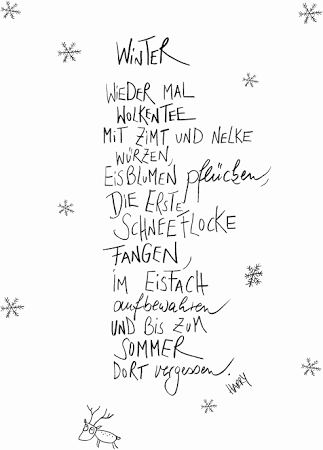 WINTER
WIEDER MAL
WOLKENTEE
MIT ZIMT UND NELKE
WÜRZEN,
EISBLUMEN pflücken,
DIE ERSTE
SCHNEEFLOCKE
FANGEN,
IM EISFACH
aufbewahren
UND BIS ZUM
SOMMER
DORT vergessen.